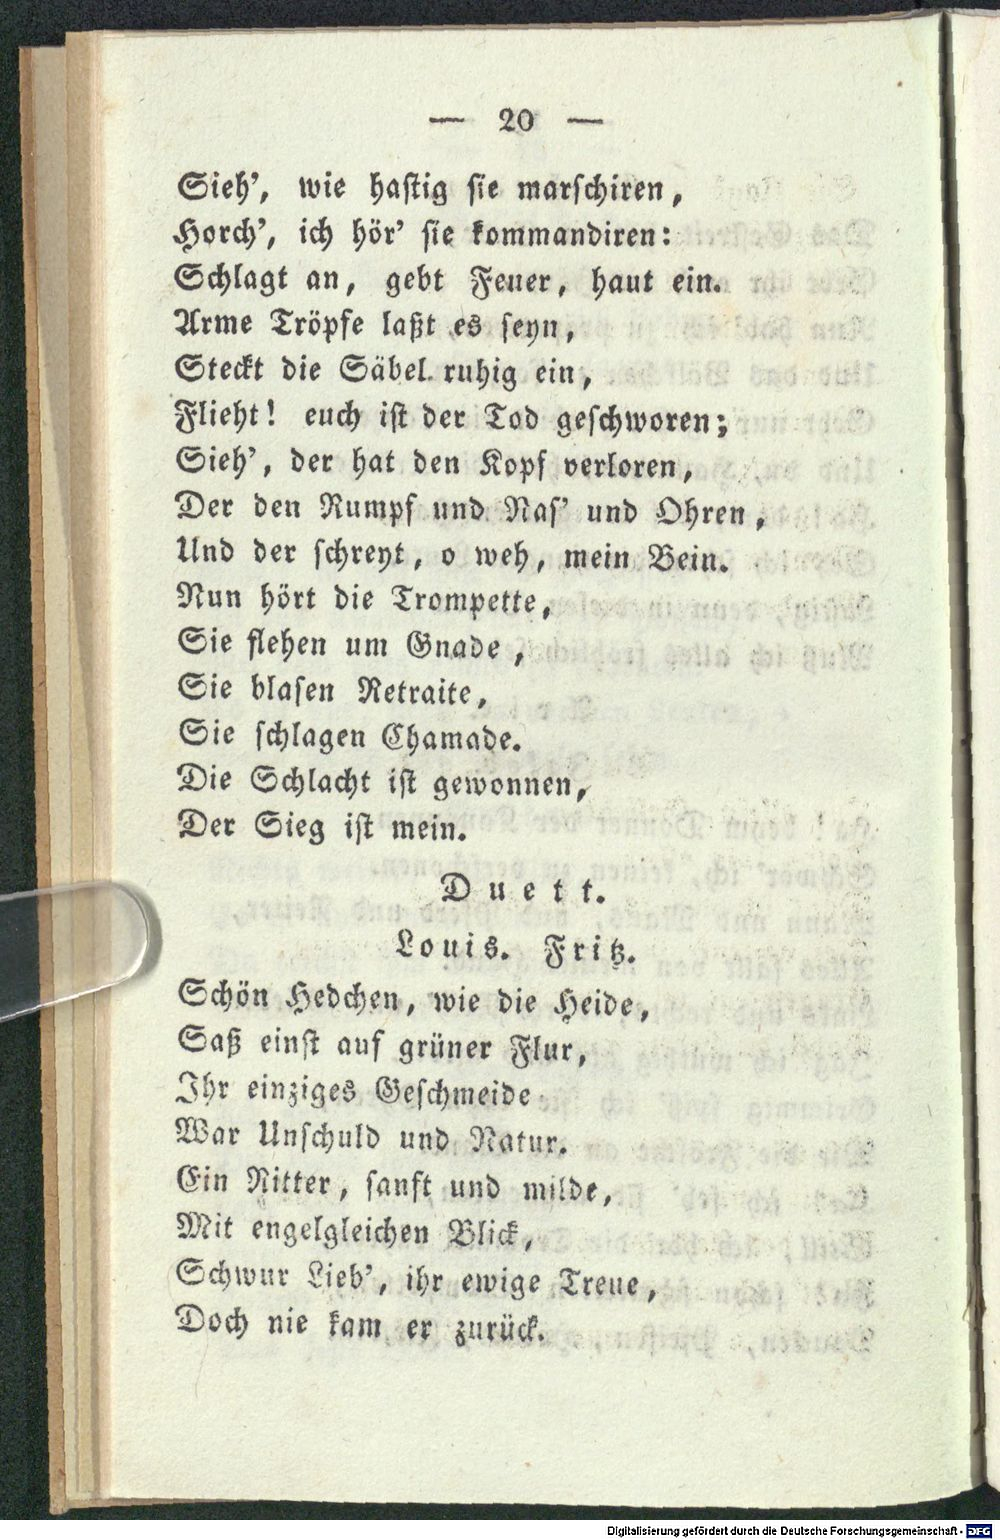 — 20 —
Sieh', wie hastig sie marschiren,
Horch', ich hör' sie kommandiren:
Schlagt an, gebt Feuer, haut ein.
Arme Tröpfe laßt es seyn,
Steckt die Säbel ruhig ein,
Flieht! euch ist der Tod geschworen;
Sieh', der hat den Kopf verloren,
Der den Rumpf und Nas' und Ohren,
Und der schreyt, o weh, mein Bein.
Nun hört die Trompette,
Sie flehen um Gnade,
Sie blasen Retraite,
Sie schlagen Chamade.
Die Schlacht ist gewonnen,
Der Sieg ist mein.
Duett.
Louis. Fritz.
Schön Hedchen, wie die Heide,
Saß einst auf grüner Flur,
Ihr einziges Geschmeide
War Unschuld und Natur.
Ein Ritter, sanft und milde,
Mit engelgleichen Blick,
Schwur Lieb', ihr ewige Treue,
Doch nie kam er zurück.
Digitalisierung gefördert durch die Deutsche Forschungsgemeinschaft - DFG